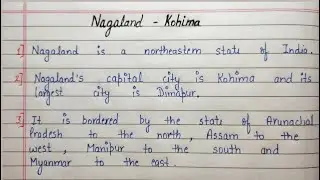 Nagaland - Kohima
1] Nagaland is a northeastern state of India.
2] Nagaland's capital city is Kohima and its
largest city is Dimapur.
3] It is bordered by the state of Arunachal
Pradesh to the north, Assam to the
west, Manipur to the south and
Myanmar to the east.